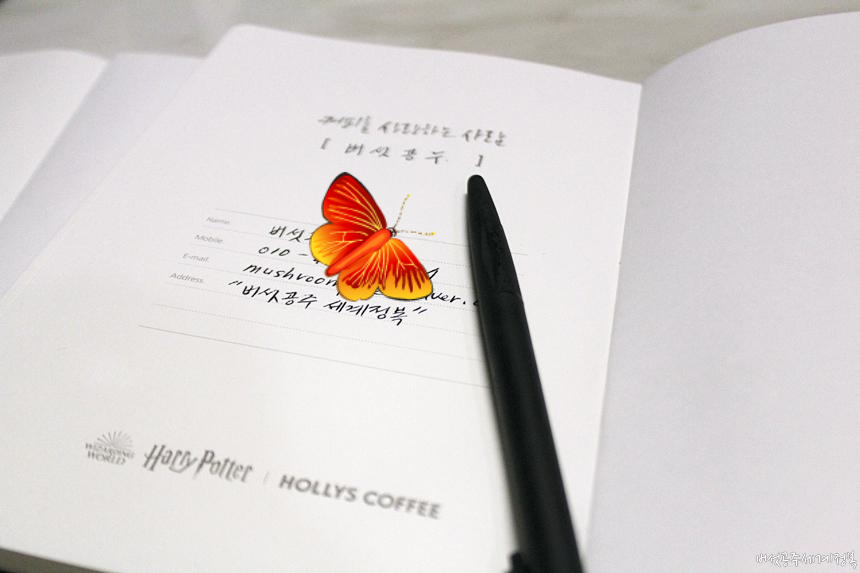 커피를 사랑하는 사람
[ 버섯공주. ]
Name. 버섯
Mobile. 010 -
E-mail. mushroom ver.
Address. "버섯공주 세계정복"
WIZARDING WORLD
Harry Potter | HOLLYS COFFEE
버섯공주세계정복